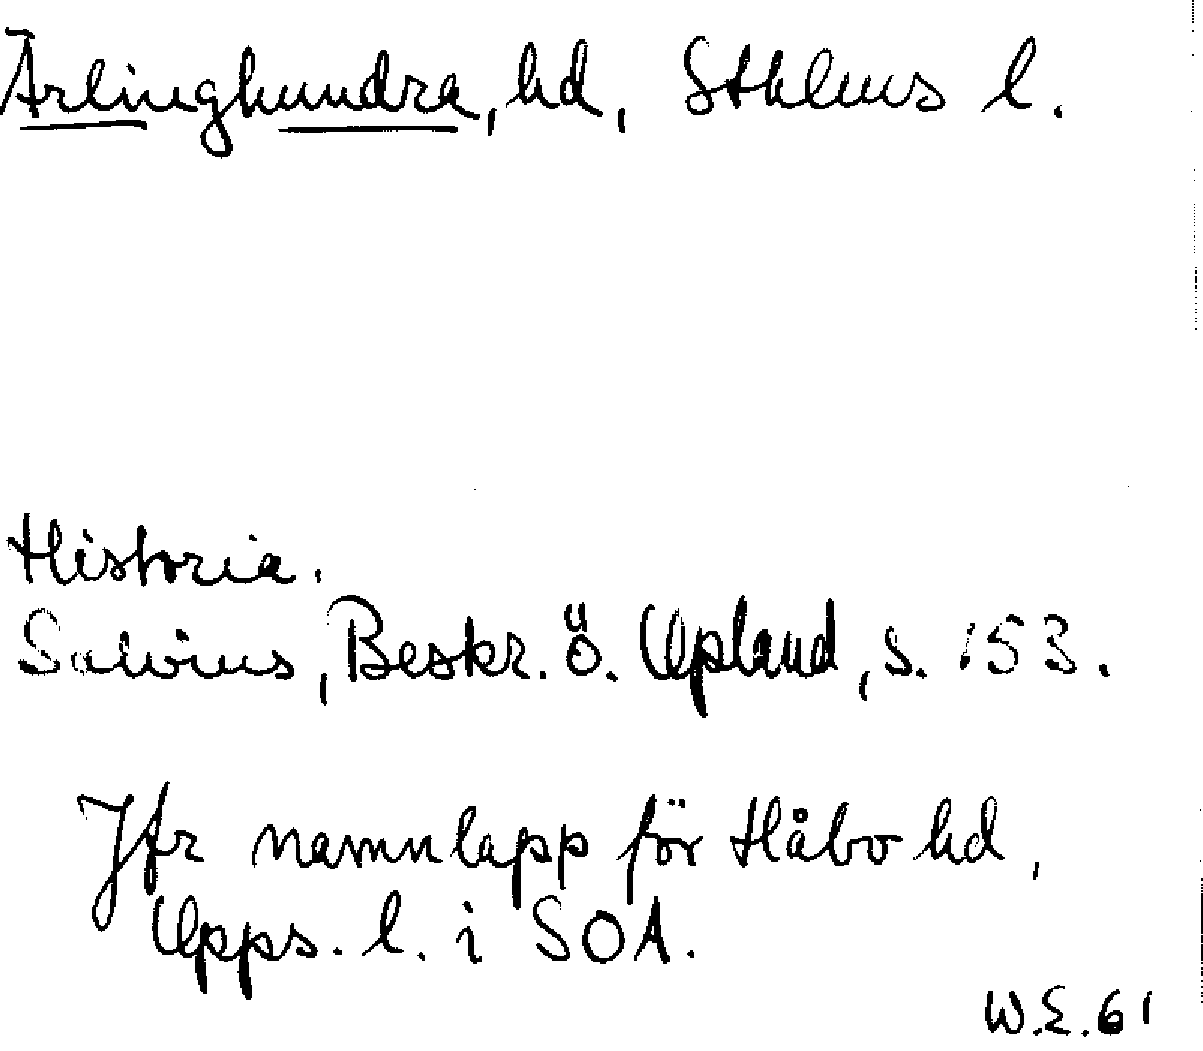 Ärlinghundra, hd, Sthlms l.
Historia.
Salvius, Beskr. ö. Upland, s. 153.
Jfr namnlapp för Håbo hd,
Upps. l. i SOA.
W.E. 61